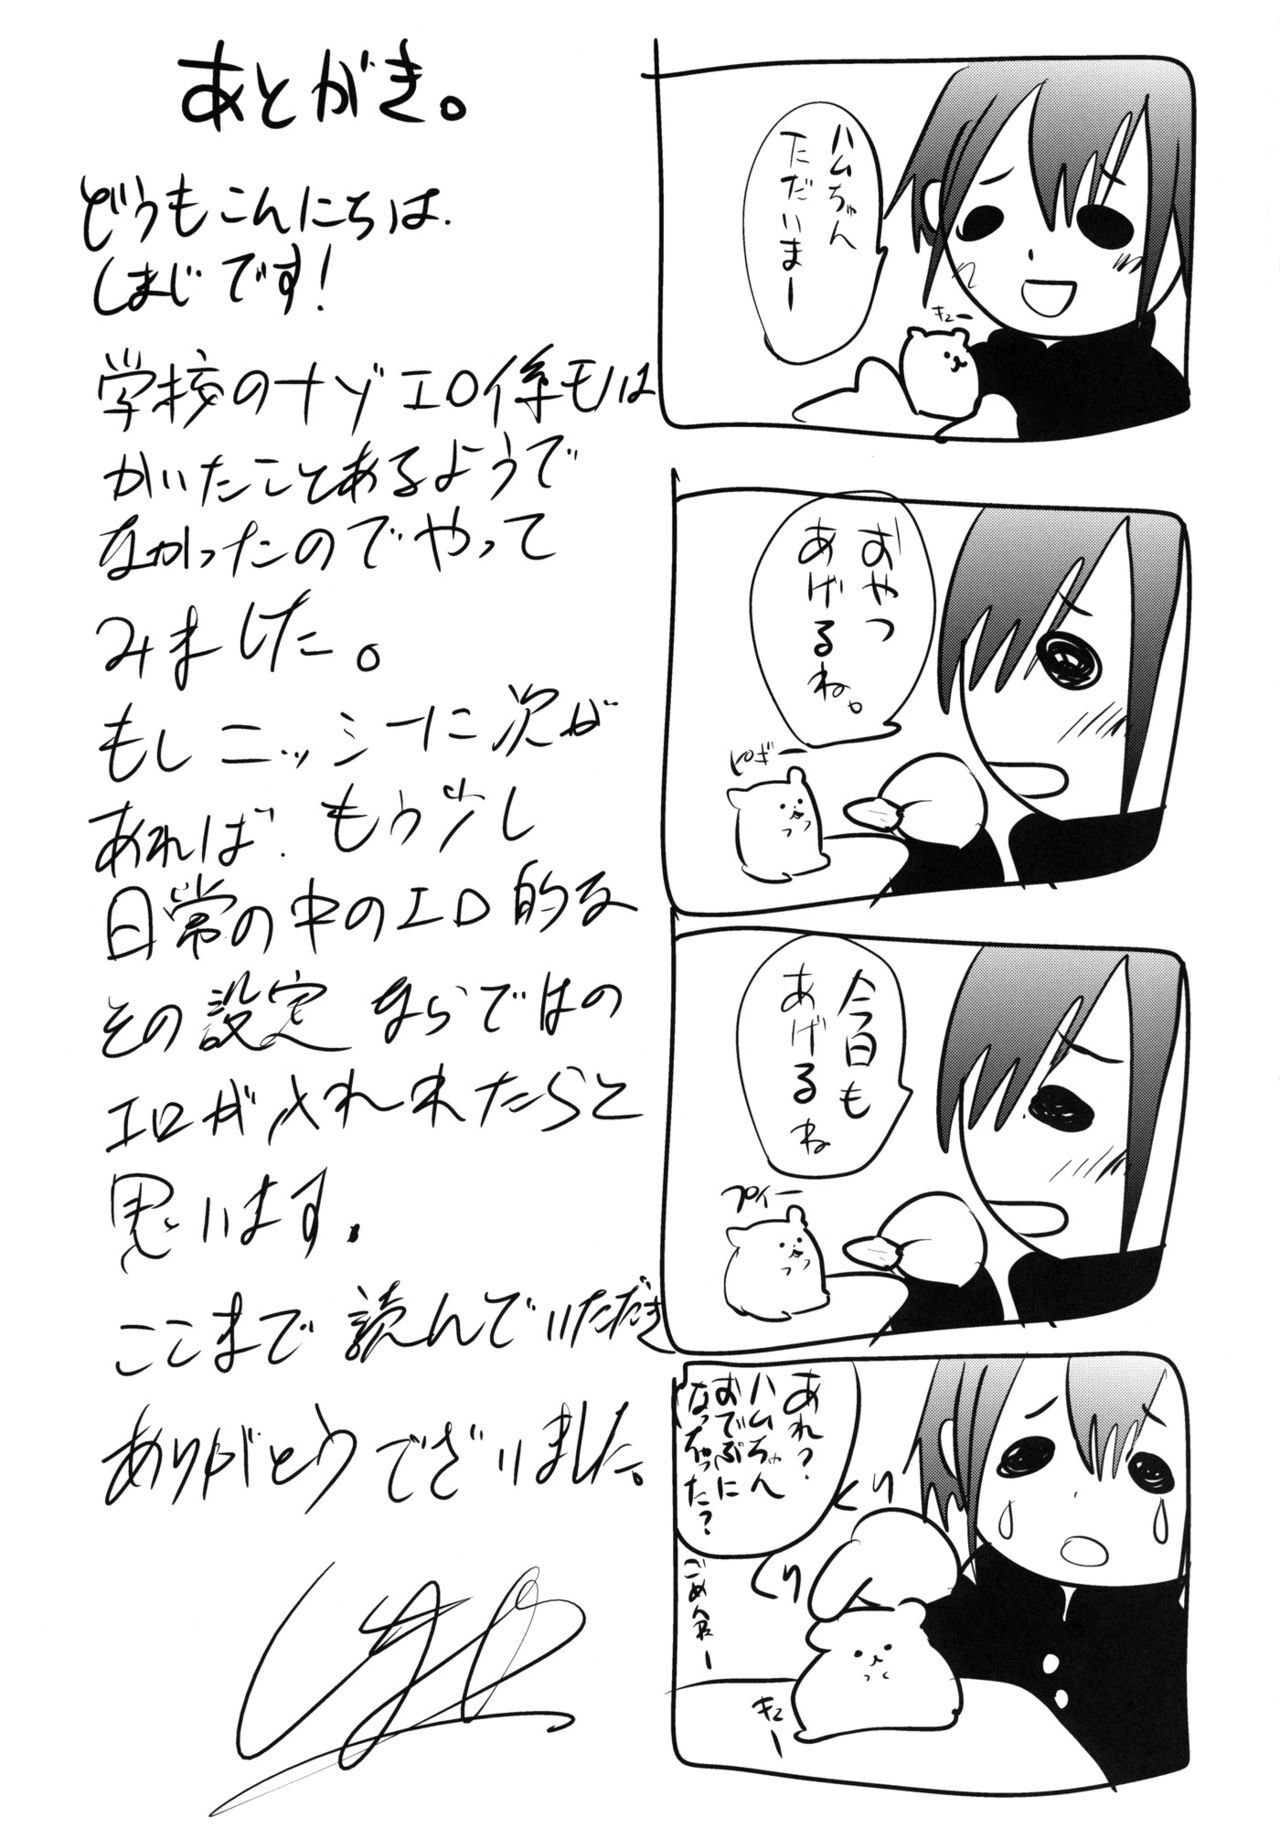 あとがき。
どうもこんにちは、
しまじです！
学校のナゾエロ係モノは
かいたことあるようで
なかったのでやって
みました。
もしニッシーに次が
あれば、もう少し
日常の中のエロ的な
その設定ならではの
エロがされれたらと
思います。
ここまで読んでいただき
ありがとうございました。
ハムちゃん
ただいまー
キュー
おやつ
あげるね。
今日も
あげるね
プイー
あれ？
ハムちゃん
おでぶに
なっちゃった？
くり
くり
キュー